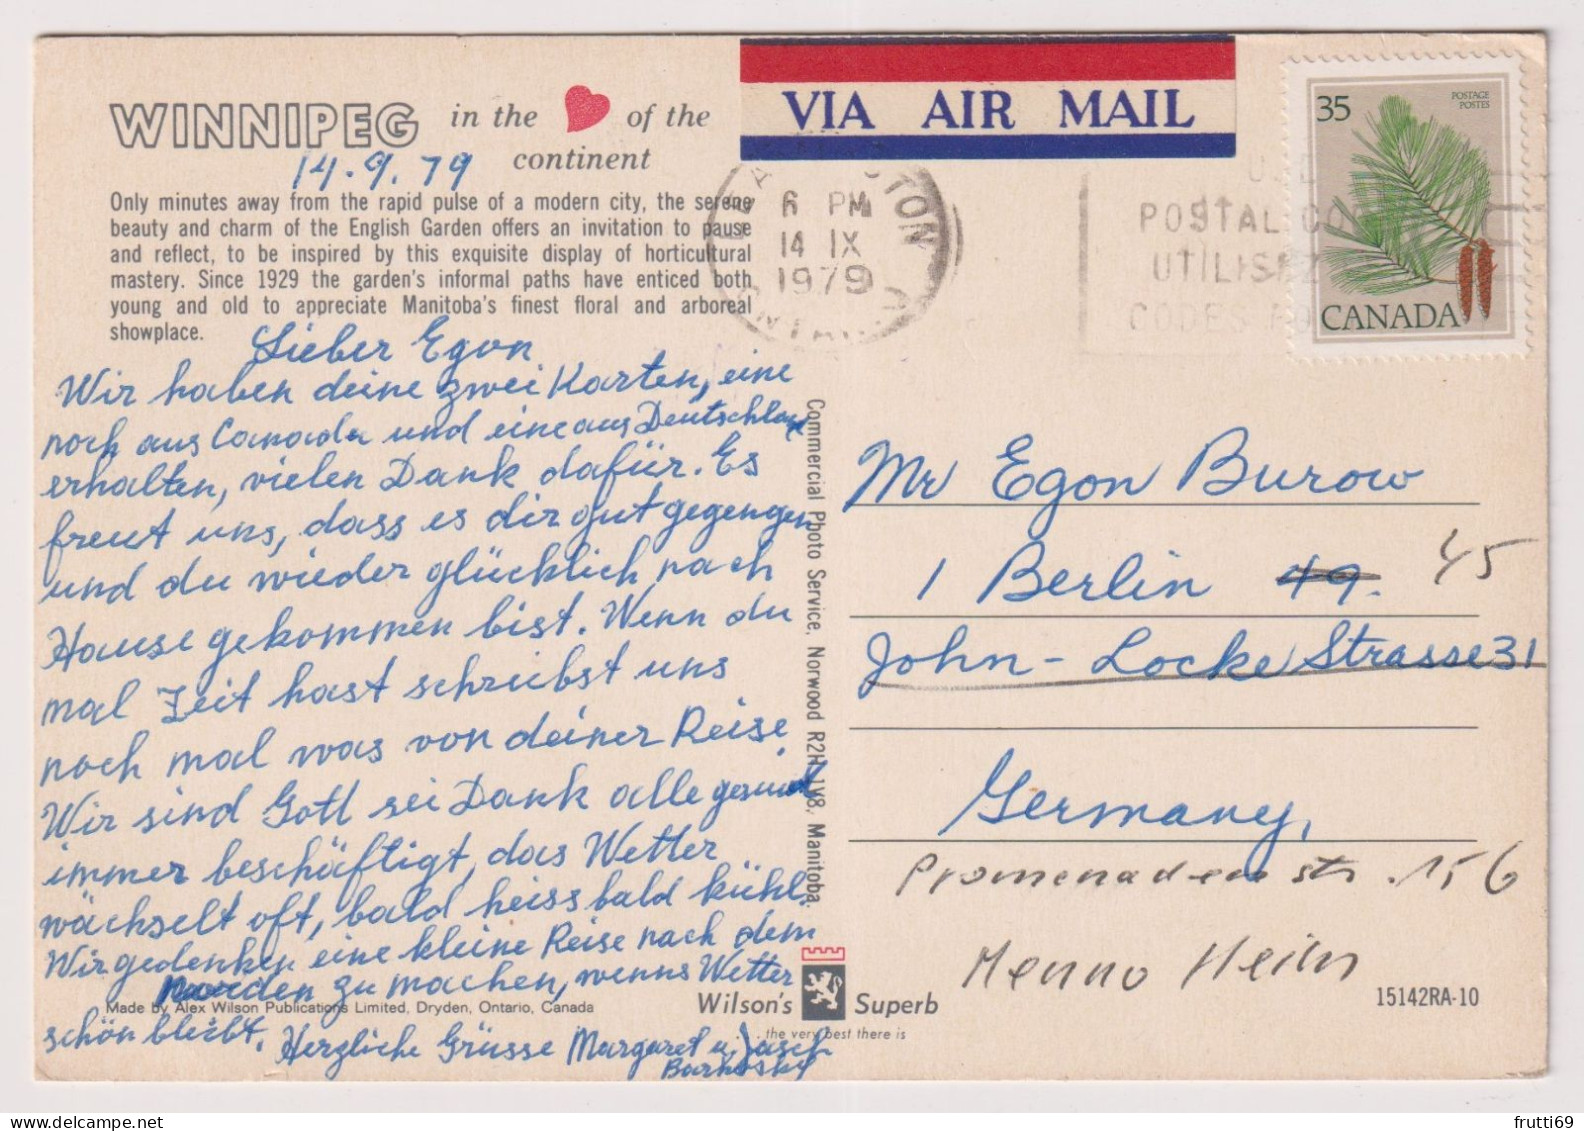 WINNIPEG in the of the
continent
14.9.79
Only minutes away from the rapid pulse of a modern city, the serene
beauty and charm of the English Garden offers an invitation to pause
and reflect, to be inspired by this exquisite display of horticultural
mastery. Since 1929 the garden's informal paths have enticed both
young and old to appreciate Manitoba's finest floral and arboreal
showplace.
Lieber Egon
Wir haben deine zwei Karten, eine
noch aus Canada und eine aus Deutschland
erhalten, vielen Dank dafür. Es
freut uns, dass es dir gut gegengen
und du wieder glücklich nach
Hause gekommen bist. Wenn du
mal Zeit hast schreibst uns
noch mal was von deiner Reise
Wir sind Gott sei Dank alle gesund
immer beschäftigt, das Wetter
wächselt oft, bald heiss bald kühl.
Wir gedenken eine kleine Reise nach dem
Norden zu machen, wenns Wetter
schön bleibt. Herzliche Grüsse Margaret u. Jasch
Barkosky
Made by Alex Wilson Publications Limited, Dryden, Ontario, Canada
Commercial Photo Service, Norwood R2H 1V8, Manitoba.
Wilson's Superb
...the very best there is
VIA AIR MAIL
6 PM
14 IX
1979
ONTARIO
USE
POSTAL CO
UTILISEZ
CODES PO
35
POSTAGE
POSTES
CANADA
Mr Egon Burow
1 Berlin 49. 45
John-Locke Strasse 31
Germany,
Promenadenstr. 156
Menno Heim
15142RA-10
frutti69